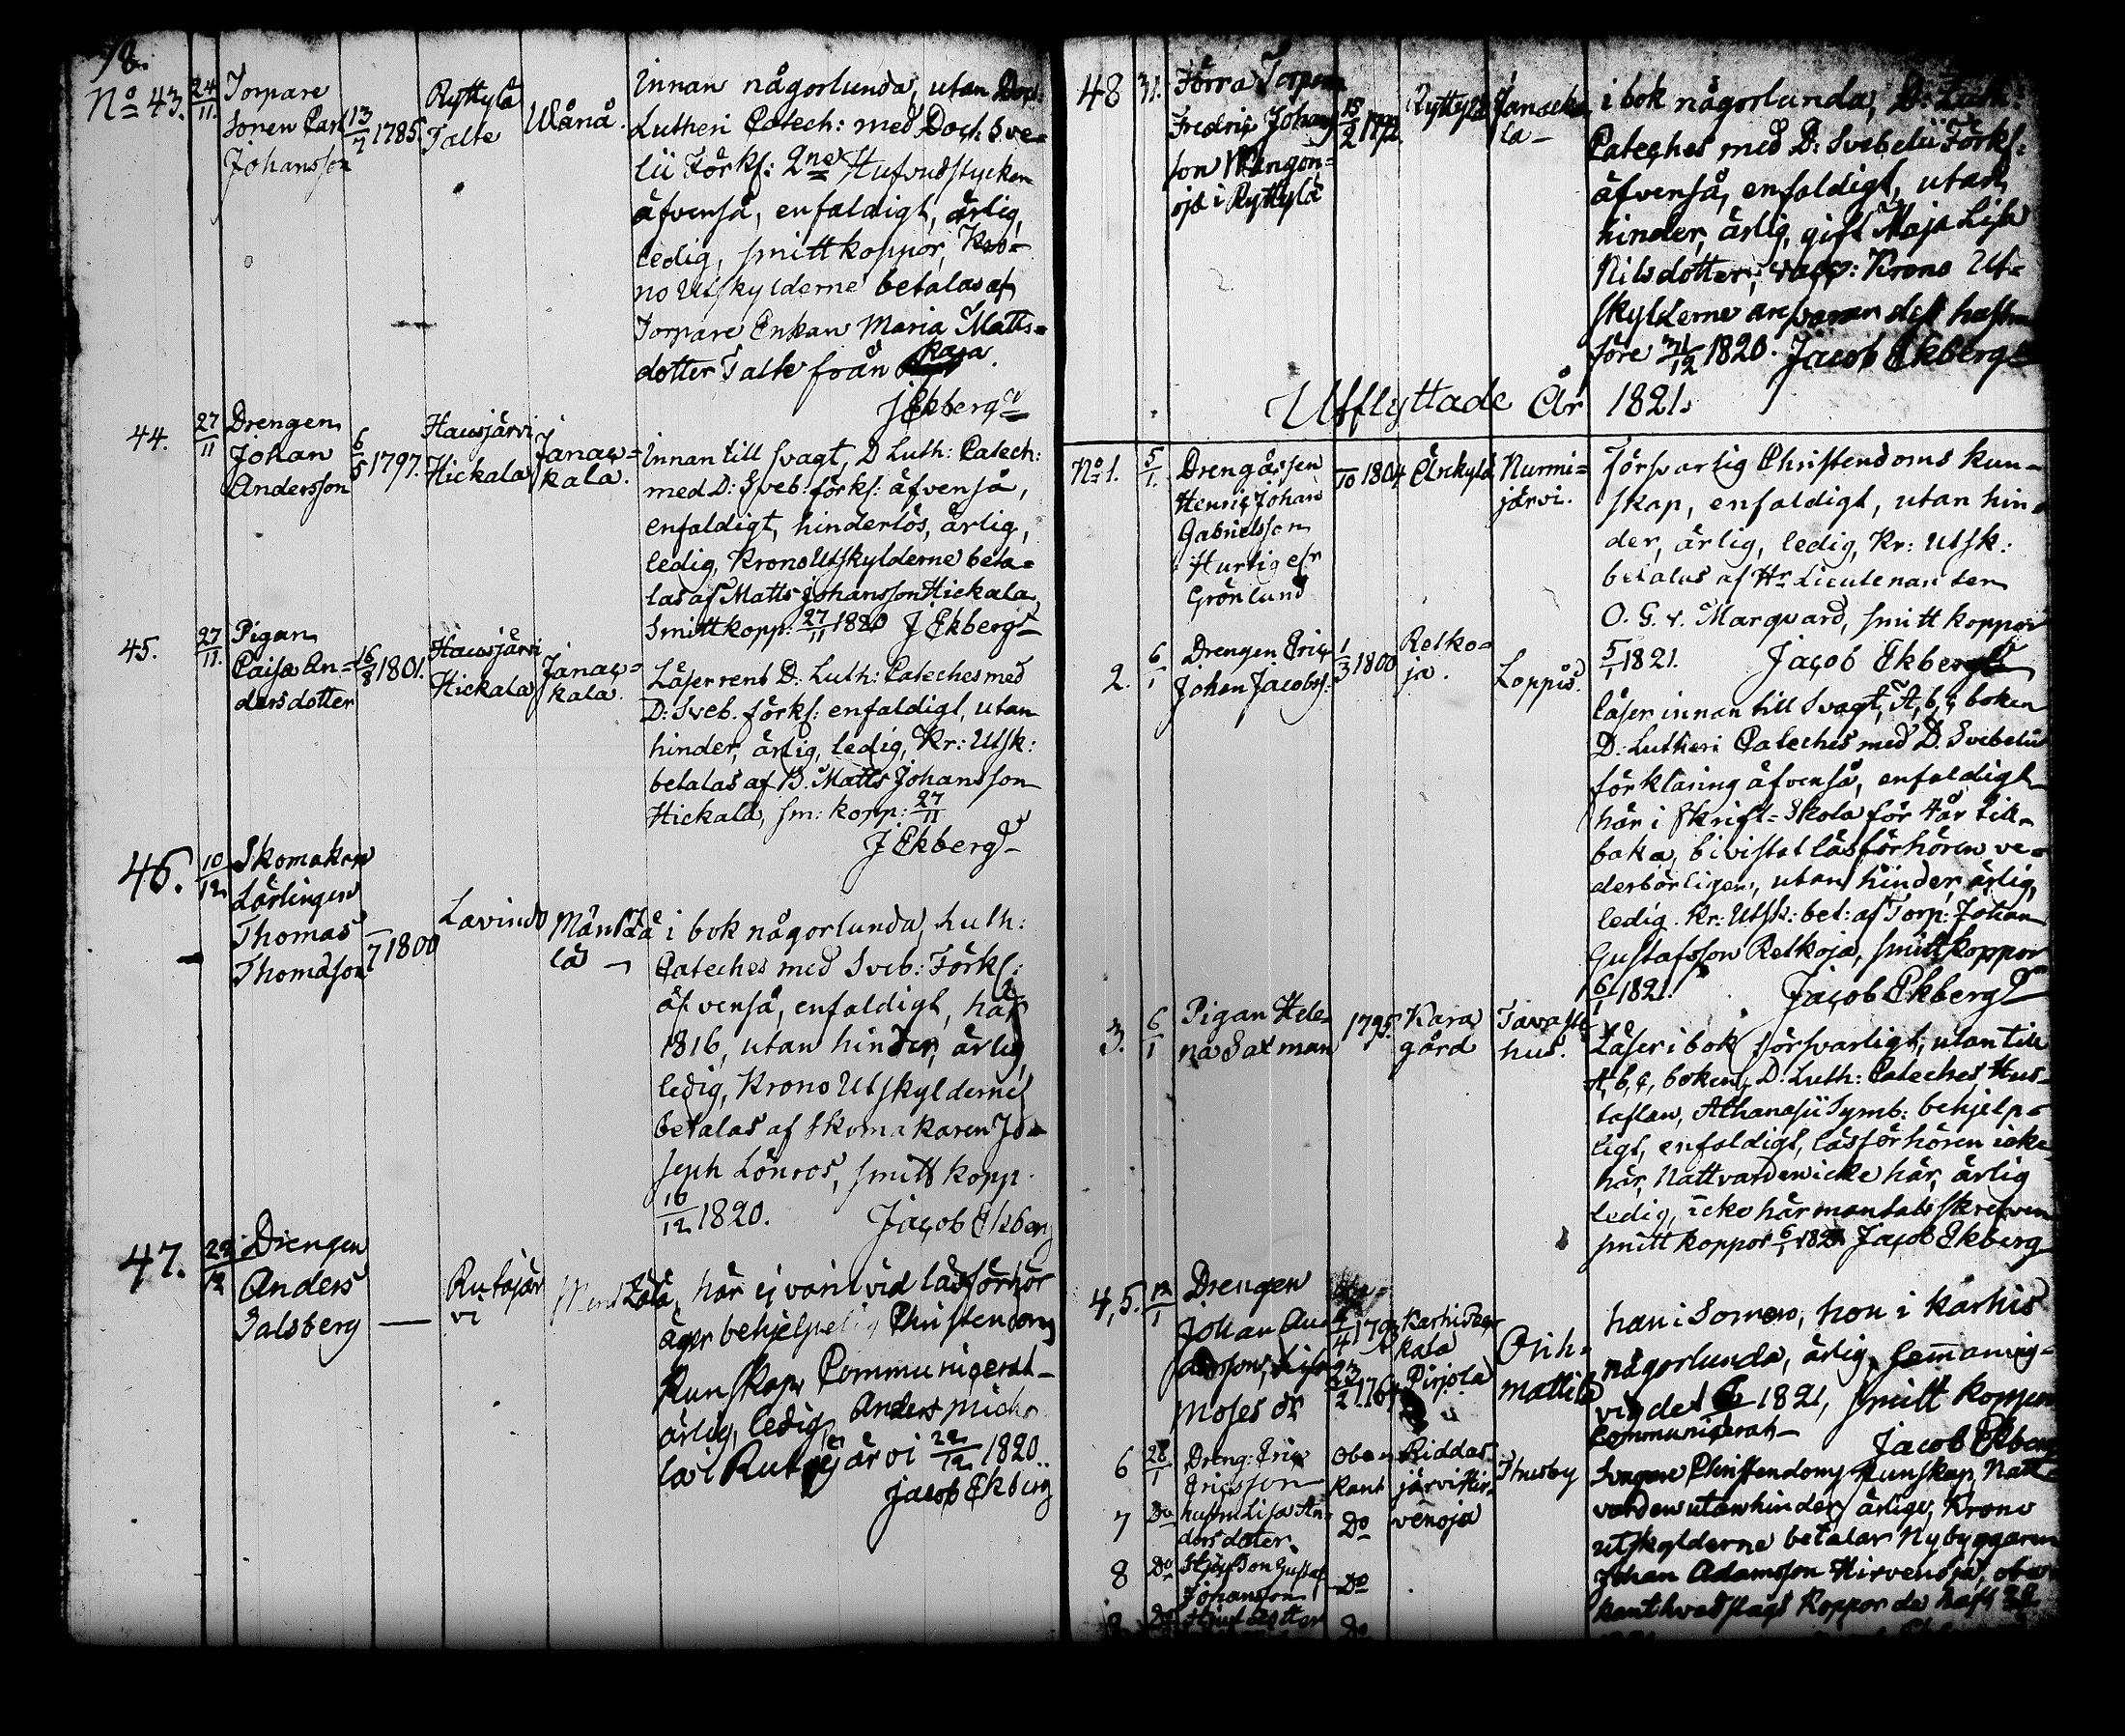 78.
No 43. 24/11. Torpare
sonen Carl
Johansson
13/7 1785.
Ryttylä
Talte
Wånå.
Innan någorlunda, utan Doct:
Lutheri Catech: med Doct: Sve-
lii Förkl: 2ne Hufvudstycken
äfvenså, enfaldigt, ärlig,
ledig, smittkoppor, Kro-
no Utskylderne betalas af
Torpare Enkan Maria Matts-
dotter Talte från Kara.
J Ekberg
44. 27/11 Drengen
Johan
Andersson
6/5 1797.
Hausjärvi
Hickala
Janac-
kala.
Innan till svagt, D Luth: Catech:
med D: Sveb: förkl: äfvenså,
enfaldigt, hinderlös, ärlig,
ledig, Krono Utskylderne beta-
las af Matts Johansson Hickala
Smittkopp: 27/11 1820 J Ekberg
45. 27/11. Pigan
Caisa An-
dersdotter
16/8 1801.
Hausjärvi
Hickala
Janac-
kala.
Läser rent D: Luth: Cateches med
D: Sveb. förkl: enfaldigt, utan
hinder, ärlig, ledig, Kr: Utsk:
betalas af B. Matts Johansson
Hickala, sm: kopp: 27/11
J Ekberg
46. 10/12 Skomakare
Lärlingen
Thomas
Thomasson
–/7 1800
Lavindo
Mäntsä
lä
i bok någorlunda, Luth:
Cateches med Sveb: Förkl:
äfvenså, enfaldigt, här
1816, utan hinder, ärlig,
ledig, Krono Utskylderne
betalas af Skomakaren Jo-
seph Lönros, smittkopp.
10/12 1820. Jacob Ekberg
47. 22/12 Drengen
Anders
Salsberg
—
Rutajär
vi
här ej varit vid läsförhör
äger behjelpelig Christendoms
Kunskap, Communicerat
ärlig, ledig, Anders Mich
la i Rutajärvi 22/12 1820.
Jacob Ekberg
48 31. Förra Torparen
Fredric Johans
son Mangon-
oja i Ryttylä
15/2
Ryttylä
Janacka
la
i bok någorlunda, D: Luth:
Cateches med D: Svebelii Förkl:
äfvenså, enfaldigt, utan
hinder, ärlig, gift Maja Lisa
Nilsdotter, vacc: Krono Ut-
skylderne ansvarar dess husbon
före 31/12 1820. Jacob Ekberg
Utflyttade År 1821.
No 1. 5/1. Drengässen
Henric Johan
Gabrielsson
Hurtig elr
Grönlund
–/10 1804
Änkylä
Nurmi-
järvi.
Försvarlig Christendoms kun-
skap, enfaldigt, utan hin-
der, ärlig, ledig, Kr: Utsk:
betalas af Hr Lieutenanten
O. G. v. Marqvard, smittkoppor
5/1 1821. Jacob Ekberg
2. 6/1 Drengen Eric
Johan Jacobss:
1/3 1800
Retko-
ja.
Loppis.
läser innan till svagt, A, b, c, boken
D: Lutheri Cateches med D. Svebelii
förklaring äfvenså, enfaldigt
här i Skrift-Skola för 4 år till-
baka, bivistat läsförhören ve-
derbörligen, utan hinder, ärlig,
ledig. Kr: Utsk: bet: af Torp: Johan
Gustafsson Retkoja, smittkoppor
6/1 1821. Jacob Ekberg
3. 6/1 Pigan Hele-
na Saxman
1795.
Kara
gård
Tavaste
hus.
Läser i bok försvarligt, utan till
A, b, c, boken, D: Luth: Cateches, Hus-
taflan, Athanasii Symb: behjelp-
ligt, enfaldigt, läsförhören icke
här, Nattvarden icke här, ärlig
ledig, icke här mantalsskrefven
smittkoppor 6/1 1821 Jacob Ekberg
4, 5. 12/1 Drengen
Johan An
dersson, Lisa
Moses dr
23/2 176
Karhi
kala
Pirjola
Orih-
mattila
han i Somero, hon i Karhis
någorlunda, ärlig, Samanvig-
vigde 1821, smittkoppor
Communicerat Jacob Ekberg
6 28/1 Dreng: Eric
Ericsson
Obe-
kant
Riddas-
järvi Hir-
venoja
Thusby
7 Do hustru Lisa An-
dersdoter.
Do
8 Do Styfson Gustaf
Johansson
Do
Svagare Christendoms Kunskap, Natt-
varden utan hinder, ärlige, Krono
utskylderne betalar Nybyggaren
Johan Adamsson Hirvenoja, obe-
kant hvad slags Koppor de haft 28
Do dotter Do